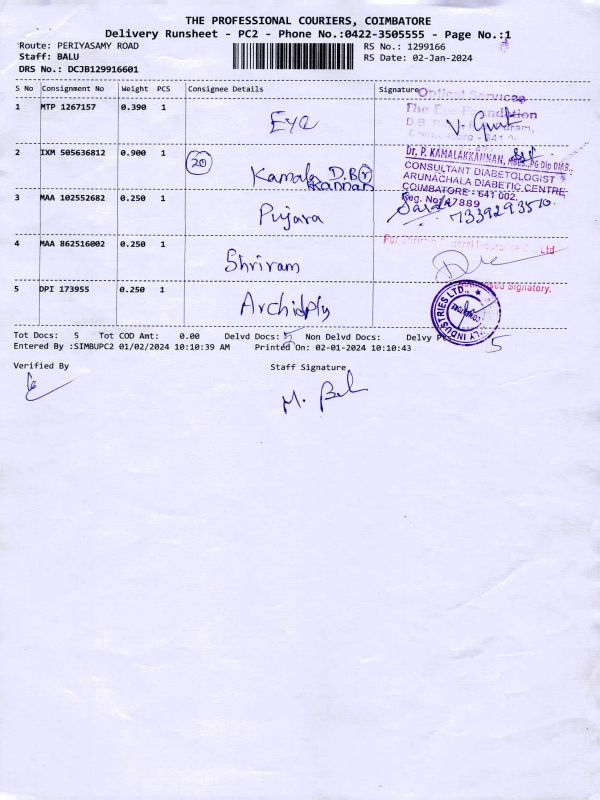 THE PROFESSIONAL COURIERS, COIMBATORE
Delivery Runsheet - PC2 - Phone No.:0422-3505555 - Page No.:1
Route: PERIYASAMY ROAD RS No.: 1299166
Staff: BALU RS Date: 02-Jan-2024
DRS No.: DCJB129916601
S No Consignment No Weight PCS Consignee Details Signature
Optical Services
1 MTP 1267157 0.390 1 Eye
The Eye Foundation
V.
2 IXM 505636812 0.900 1 20 Kamala D.B(r) kannan
Dr. P. KAMALAKKANNAN, MBBS.,PG Dip DIAB.,
CONSULTANT DIABETOLOGIST
ARUNACHALA DIABETIC CENTRE
COIMBATORE - 641 002.
Reg. No: 47889
3 MAA 102552682 0.250 1 Pujara
7339293510
4 MAA 862516002 0.250 1 Shriram
For Shriram General Insurance Co., Ltd
Authorised Signatory.
5 DPI 173955 0.250 1 Archidply
INDUSTRIES LTD.,
Tot Docs: 5 Tot COD Amt: 0.00 Delvd Docs: 5 Non Delvd Docs: Delvy 5
Entered By :SIMBUPC2 01/02/2024 10:10:39 AM Printed On: 02-01-2024 10:10:43
Verified By Staff Signature
M. Bal